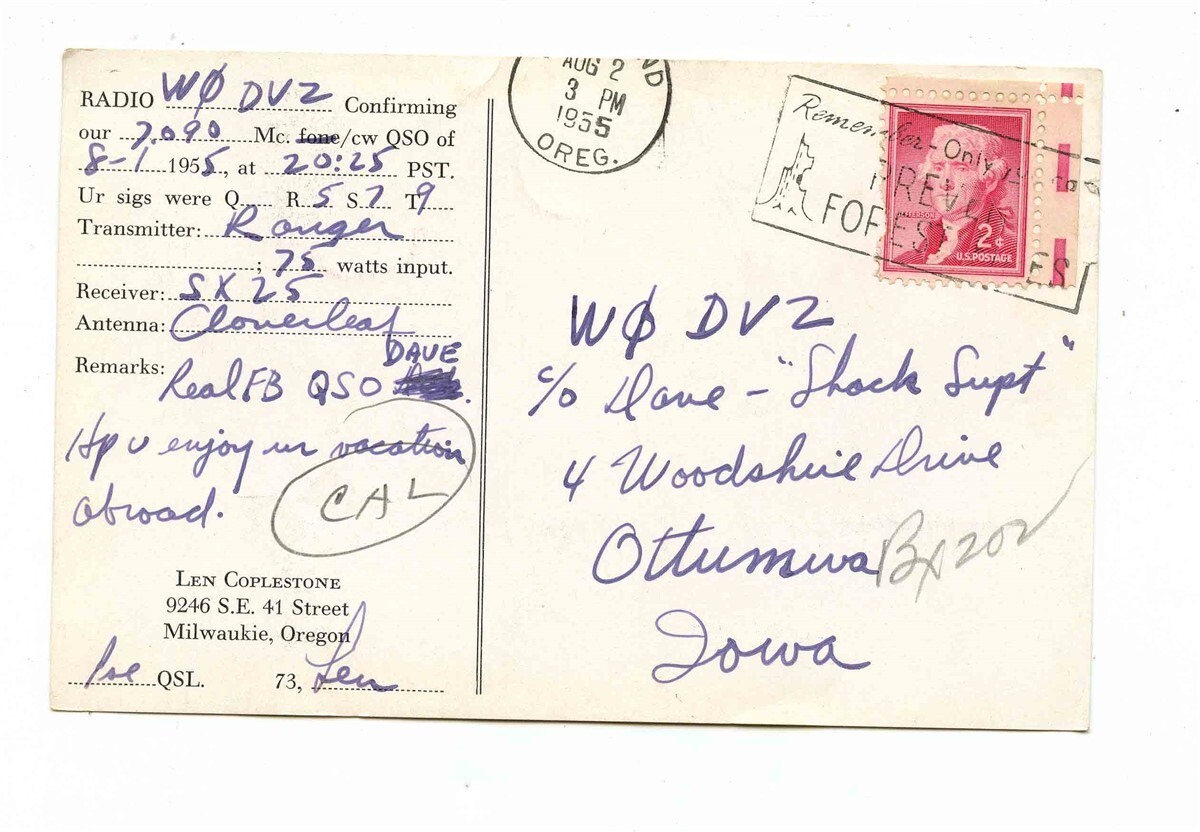 RADIO WØ DVZ Confirming
our 7.090 Mc. fone/cw QSO of
8-1 1955, at 20:25 PST.
Ur sigs were Q R 5 S 7 T 9
Transmitter: Ranger
; 75 watts input.
Receiver: SX 25
Antenna: Cloverleaf
Remarks: DAVE
Real FB QSO .
Hp u enjoy ur vacation
abroad.
CAL
LEN COPLESTONE
9246 S.E. 41 Street
Milwaukie, Oregon
Pse QSL. 73, Len
AUG 2
3 PM
1955
OREG.
Remember - Only
PREVE
FOREST ES
JEFFERSON
2¢
U.S. POSTAGE
WØ DVZ
c/o Dave - "Shack Supt"
4 Woodshire Drive
Ottumwa Bx 202
Iowa